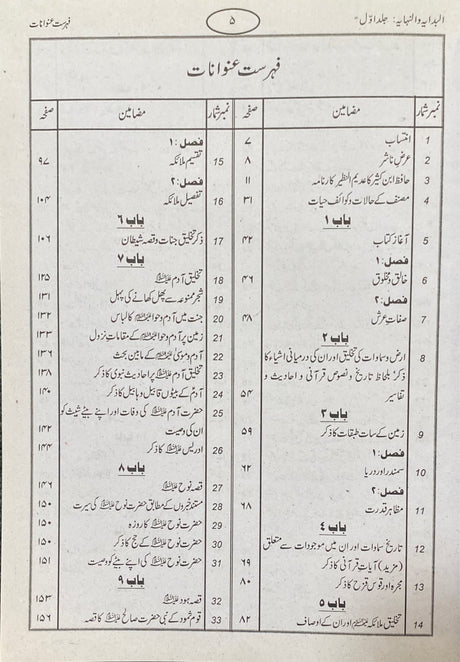 البدایہ والنہایہ: جلد اوّل
۵
فہرست عنوانات
فہرست عنوانات
نمبر شمار مضامین صفحہ
1 انتساب ۷
2 عرض ناشر ۸
3 حافظ ابن کثیر کا عدیم النظیر کارنامہ ۱۱
4 مصنف کے حالات و کوائف حیات ۳۱
باب ۱
5 آغاز کتاب ۴۲
فصل :۱
6 خالق و مخلوق ۴۶
فصل :۲
7 صفات عرش ۴۸
باب ۲
8 ارض و سماوات کی تخلیق اور ان کی درمیانی اشیاء کا
ذکر' بلحاظ تاریخ و نصوص قرآنی و احادیث و
تفاسیر ۵۴
باب ۳
9 زمین کے سات طبقات کا ذکر ۵۹
فصل :۱
10 سمندر اور دریا ۶۲
فصل :۲
11 مظاہر قدرت ۶۸
باب ۴
12 تاریخ سماوات اور ان میں موجودات سے متعلق
(مزید) آیات قرآنی کا ذکر ۶۹
13 مجرہ اور قوس قزح کا ذکر ۸۰
باب ۵
14 تخلیق ملائکہ علیہم السلام اور ان کے اوصاف ۸۲
نمبر شمار مضامین صفحہ
فصل :۱
15 تقسیم ملائکہ ۹۷
فصل :۲
16 تفصیل ملائکہ ۱۰۴
باب ۶
17 ذکر تخلیق جنات و قصہ شیطان ۱۰۶
باب ۷
18 تخلیق آدم علیہ السلام ۱۲۵
19 شجر ممنوعہ سے پھل کھانے کی پہل ۱۳۱
20 جنت میں آدم و حوا علیہما السلام کا لباس ۱۳۲
21 زمین پر آدم و حوا کے مقامات نزول ۱۳۳
22 آدم و موسیٰ علیہما السلام کے مابین بحث ۱۳۶
23 تخلیق آدم علیہ السلام پر احادیث نبوی کا ذکر ۱۳۸
24 آدمؑ کے بیٹوں قابیل و ہابیل کا ذکر ۱۴۰
25 حضرت آدم علیہ السلام کی وفات اور اپنے بیٹے شیث کو
ان کی وصیت ۱۴۲
26 ادریس علیہ السلام کا ذکر ۱۴۴
باب ۸
27 قصہ نوح علیہ السلام ۱۴۶
28 مستند خبروں کے مطابق حضرت نوح علیہ السلام کی سیرت ۱۵۰
29 حضرت نوح علیہ السلام کا روزہ ۱۵۰
30 حضرت نوح علیہ السلام کے حج کا ذکر ۱۵۰
31 حضرت نوح علیہ السلام کی اپنے بیٹے کو وصیت ۱۵۱
باب ۹
32 قصہ ہود علیہ السلام ۱۵۳
33 قوم ثمود کے نبی حضرت صالح علیہ السلام کا قصہ ۱۵۶